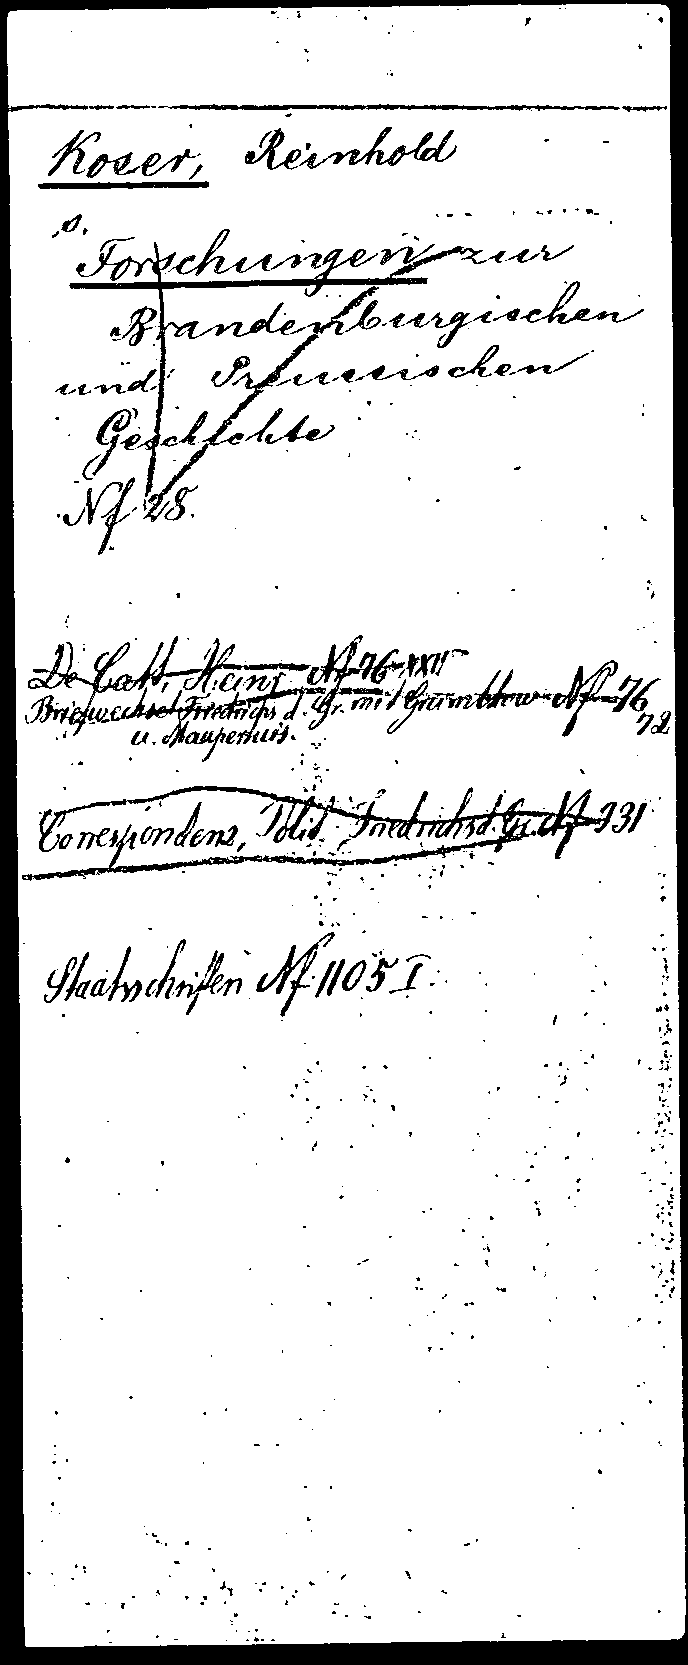 Koser, Reinhold
s.
Forschungen zur
Brandenburgischen
und Preussischen
Geschichte
Nf 28.
De Catt, Heinr. Nf 76 XXII
Briefwechsel Friedrichs d. Gr. mit Grumbkow Nf 76
u. Maupertuis. 72
Correspondenz, Polit. Friedrichs d. Gr. Nf 331
Staatsschriften Nf 1105 I